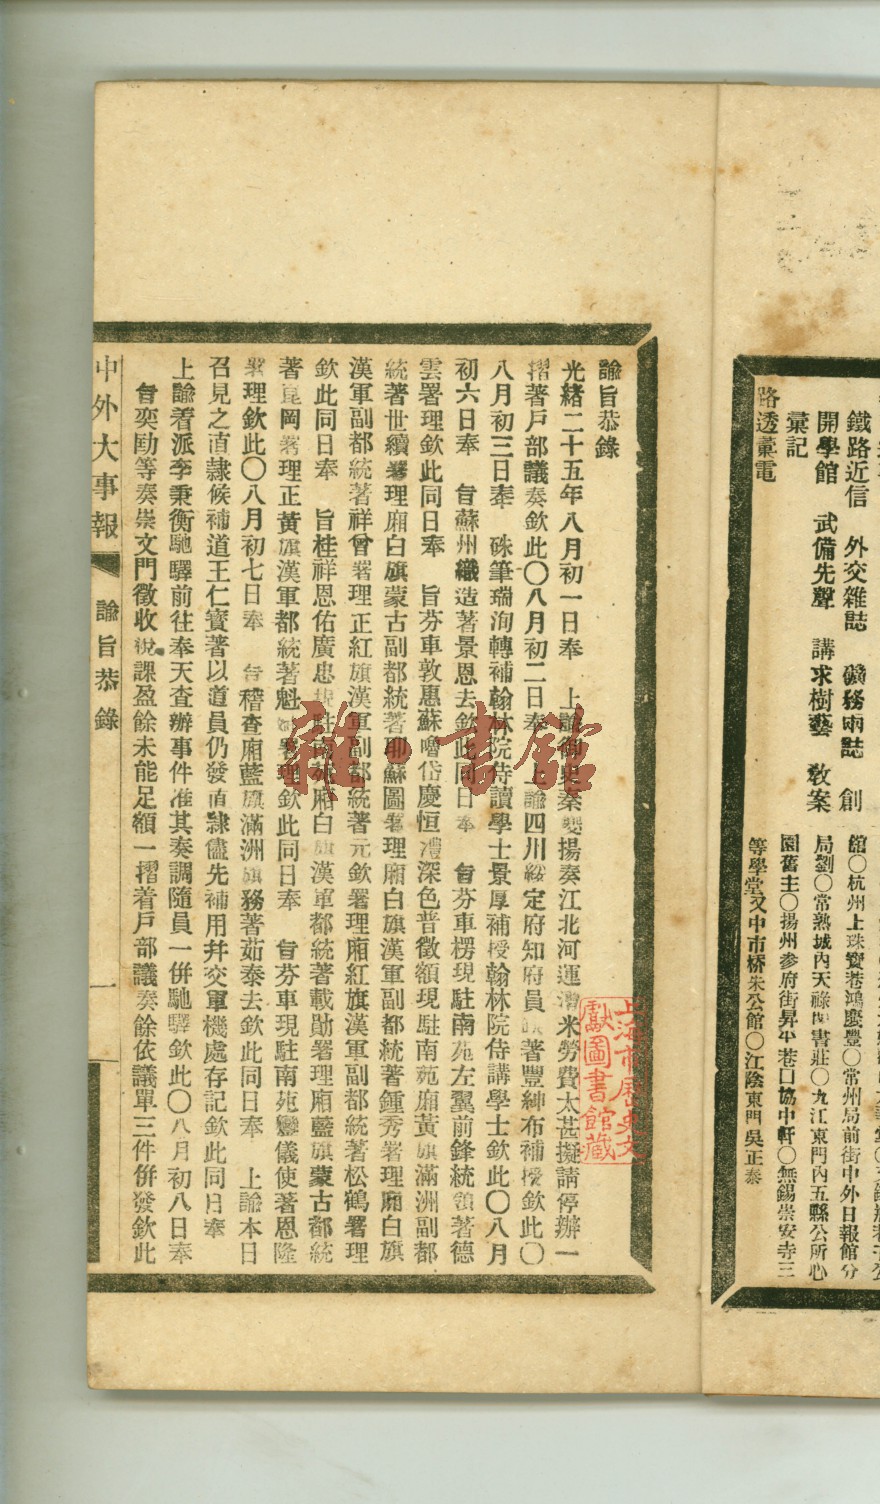 鐵路近信　外交雜誌　礦務雨誌　創
開學館　武備先聲　講求樹藝　敎案
彙記
路透彙電
館〇杭州上珠寶巷鴻慶豐〇常州局前街中外日報館分
局劉〇常熟城內天祿閣書莊〇九江東門內五縣公所心
園舊主〇揚州參府街昇平巷口協中軒〇無錫崇安寺三
等學堂又中市桥朱公館〇江陰東門吳正泰
諭旨恭錄
光緖二十五年八月初一日奉　上諭御史秦夔揚奏江北河運漕米勞費太甚擬請停辦一
摺著戶部議奏欽此〇八月初二日奉　上諭四川綏定府知府員缺著豐紳布補授欽此〇
八月初三日奉　硃筆瑞洵轉補翰林院侍讀學士景厚補授翰林院侍講學士欽此〇八月
初六日奉　旨蘇州織造著景恩去欽此同日奉　旨芬車楞現駐南苑左翼前鋒統領著德
雲署理欽此同日奉　旨芬車敦惠蘇嚕岱慶恒禮深色普徵額現駐南苑廂黃旗滿洲副都
統著世續署理廂白旗蒙古副都統著耶蘇圖署理廂白旗漢軍副都統著鍾秀署理廂白旗
漢軍副都統著祥曾署理正紅旗漢軍副都統著元欽署理廂紅旗漢軍副都統著松鶴署理
欽此同日奉　旨桂祥恩佑廣忠現駐南苑廂白旗漢軍都統著載勛署理廂藍旗蒙古都統
著崑岡署理正黃旗漢軍都統著魁斌署理欽此同日奉　旨芬車現駐南苑鑾儀使著恩隆
署理欽此〇八月初七日奉　旨稽查廂藍旗滿洲旗務著茹泰去欽此同日奉　上諭本日
召見之直隷候補道王仁寶著以道員仍發直隷儘先補用幷交軍機處存記欽此同日奉
上諭着派李秉衡馳驛前往奉天查辦事件准其奏調隨員一併馳驛欽此〇八月初八日奉
旨奕劻等奏崇文門徵收稅課盈餘未能足額一摺着戶部議奏餘依議單三件併發欽此
中外大事報　諭旨恭錄　一
雜·書館
上海市歷史文
獻圖書館藏